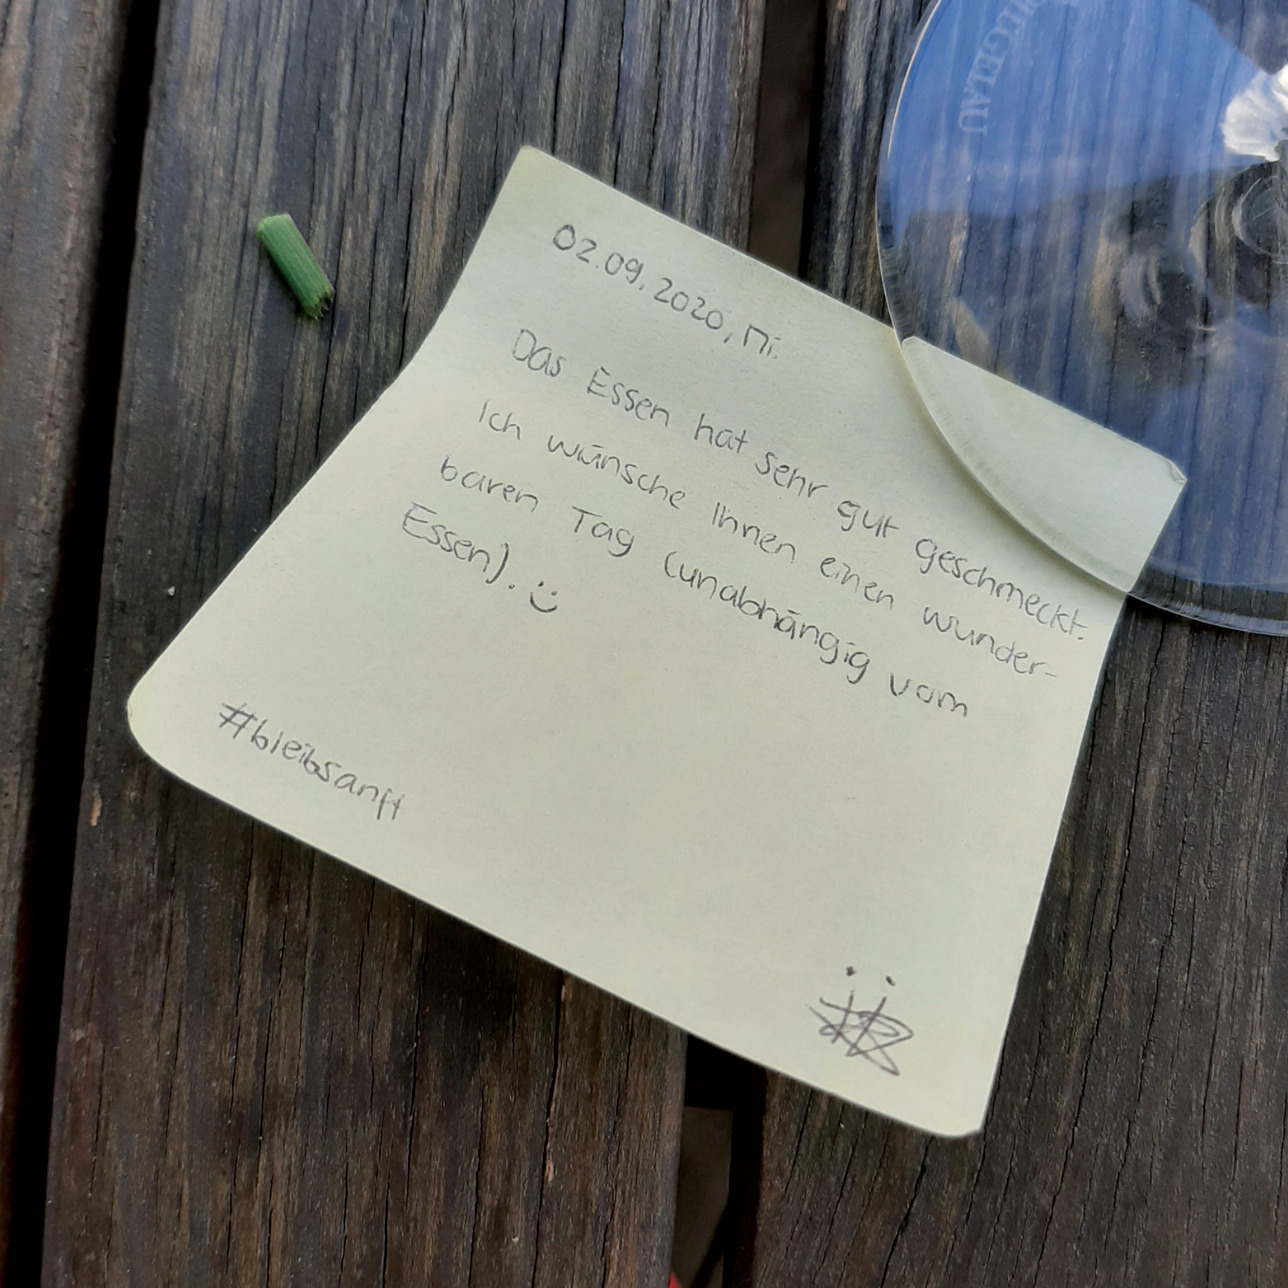 02.09.2020, Mi.
Das Essen hat sehr gut geschmeckt.
Ich wünsche Ihnen einen wunder-
baren Tag (unabhängig vom
Essen). :)
#bleibsanft
SPIEGELAU